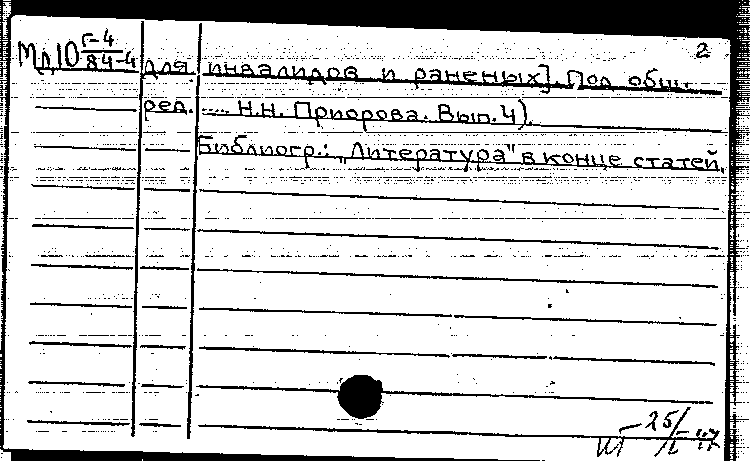 2
Мд10 Г-4
84-4
для инвалидов и раненых]. Под общ.
ред. .... Н.Н. Приорова. Вып. 4).
Библиогр.: „Литература" в конце статей.
25/I-47